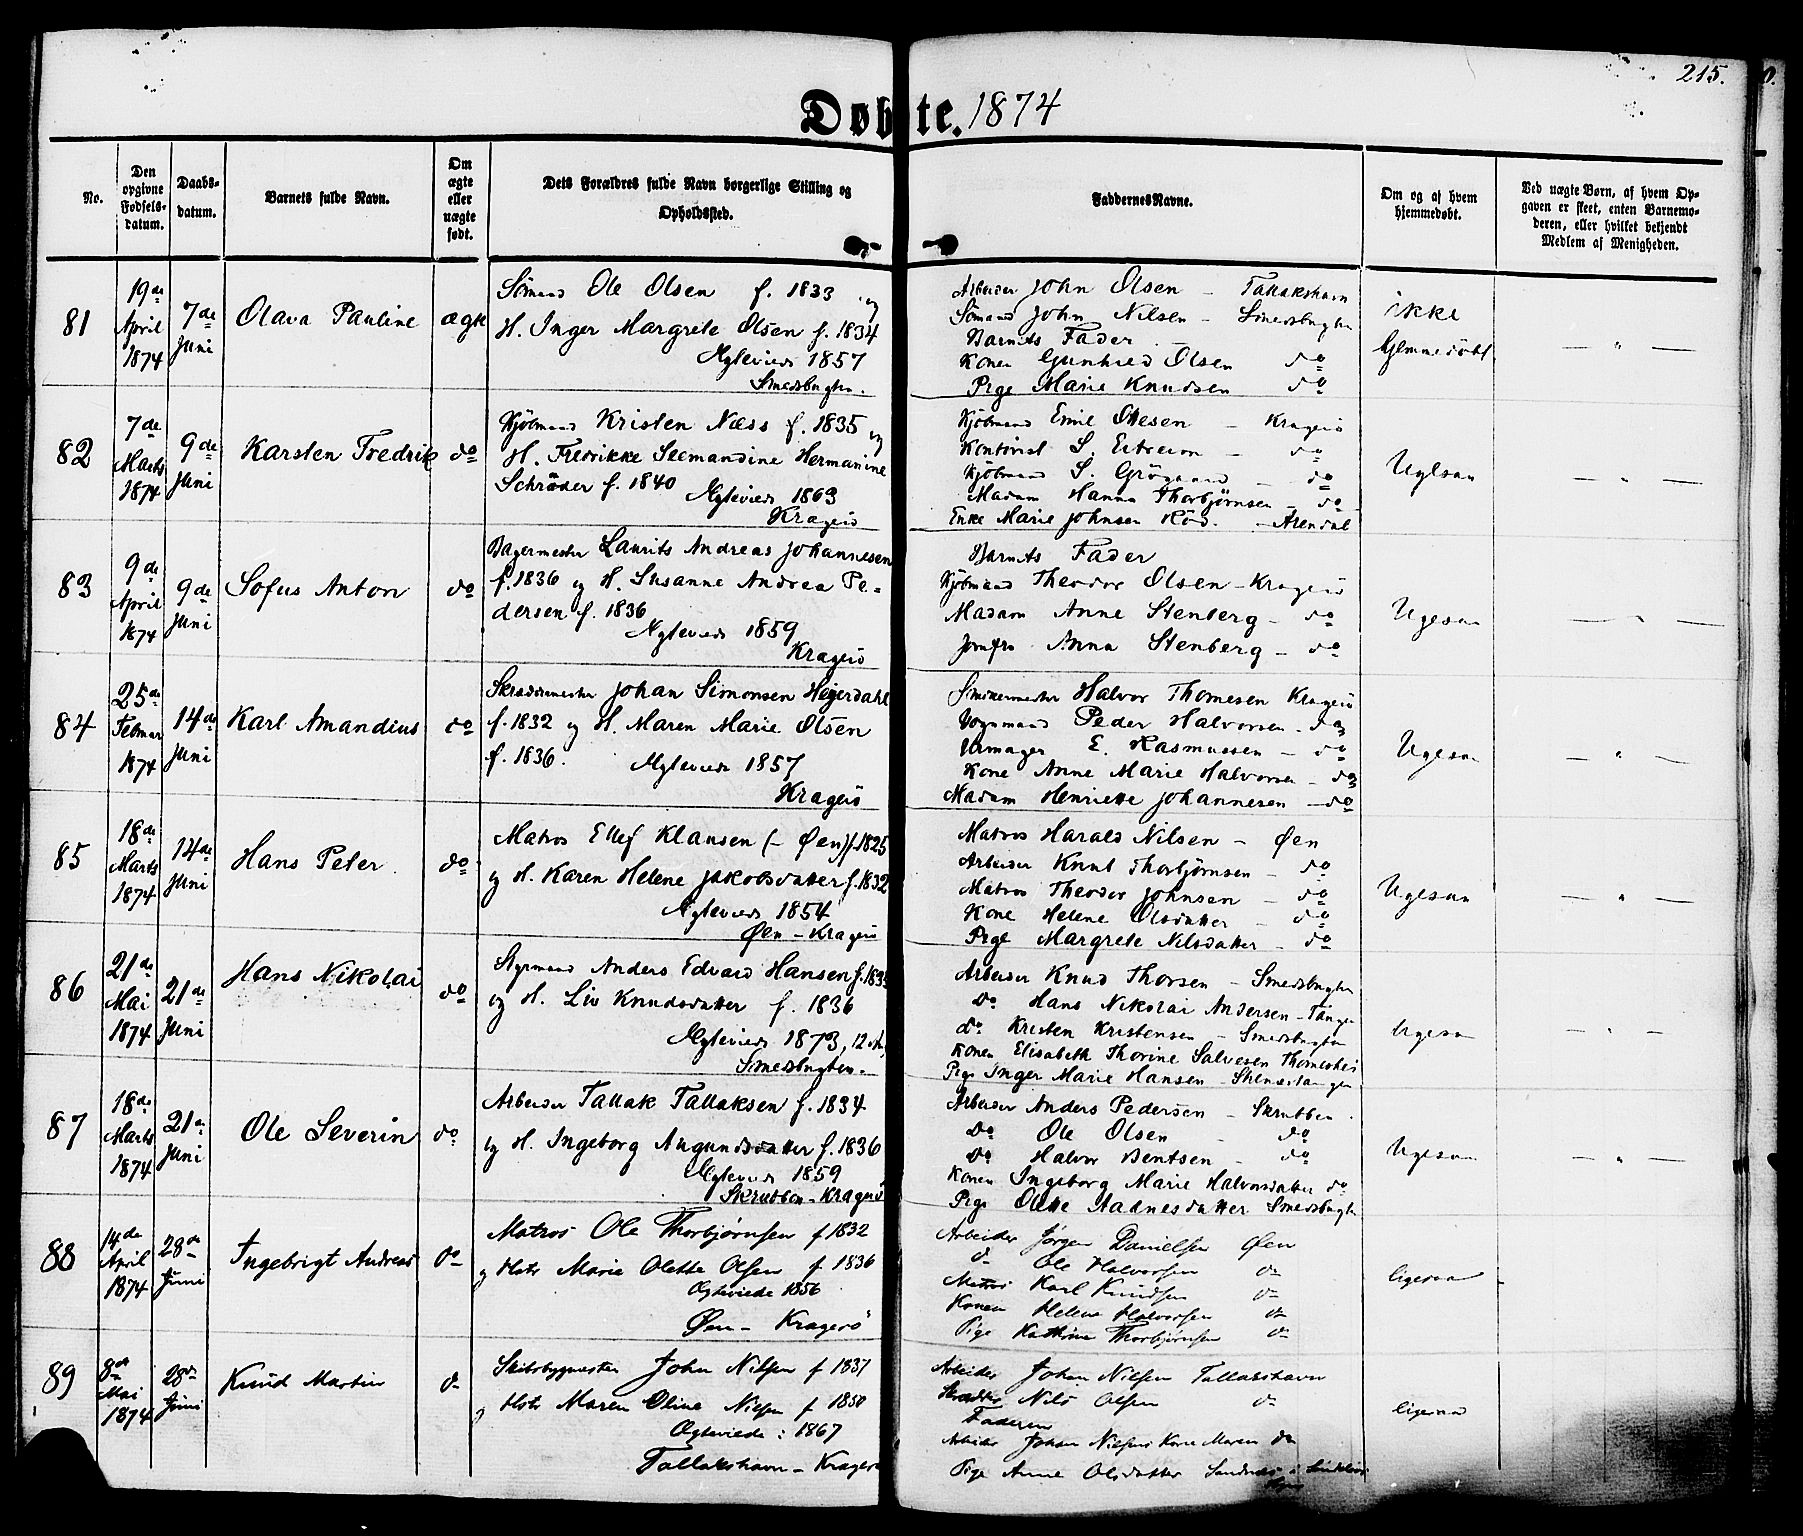 215.
Døbte. 1874
No.
Den opgivne Fødsels-datum.
Daabs-datum.
Barnets fulde Navn.
Om ægte eller uægte født.
Dets Forældres fulde Navn borgerlige Stilling og Opholdssted.
Faddernes Navne.
Om og af hvem hjemmedøbt.
Ved uægte Børn, af hvem Opgaven er skeet, enten Barnemoderen, eller hvilket bekjendt Medlem af Menigheden.
81
19de April 1874
7de Juni
Olava Pauline
ægte
Sømand Ole Olsen f. 1833 og
H. Inger Margrete Olsen f. 1834
Ægteviede 1857
Smedsbugten.
Arbeider John Olsen - Tallakshavn
Sømand John Nilsen - Smedsbugten
Barnets Fader
Konen Gunhild Olsen do
Pige Marie Knudsen do
ikke
hjemmedøbt
— " —
82
7de Marts 1874
9de Juni
Karsten Fredrik
do
Kjøbmand Kristen Næss f. 1835 og
H. Fredrikke Hermanine
Schrøder f. 1840 Ægteviede 1863
Kragerø
Kjøbmand Emil Ottesen - Kragerø
Kontorist S. - do
Kjøbmand S. - do
Madam Hanna Thorbjørnsen - do
Enke Marie Johnsen - Arendal
Ugesaa
— " —
83
9de April 1874
9de Juni
Sofus Anton
do
Bagermester Laurits Andreas Johannesen
f. 1836 og H. Susanne Andrea Pe-
dersen f. 1836
Ægteviede 1859
Kragerø
Barnets Fader
Kjøbmand Theodor Olsen - Kragerø
Madam Anne Stenberg - do
Jomfru Anna Stenberg - do
Ugesaa
— " —
84
25de Februar 1874
14de Juni
Karl Amandius
do
Skræddermester Johan Simonsen Heijerdahl
f. 1832 og H. Maren Marie Olsen
f. 1836.
Ægteviede 1857
Kragerø
Halvor Thomesen Kragerø
Vognmand Peder Halvorsen - do
Urmager E. Rasmussen - do
Kone Anne Marie Halvorsen - do
Madam Henriette Johannesen - do
Ugesaa
— " —
85
18de Marts 1874
14de Juni
Hans Peter
do
Matros Ellef Klausen (- Øen) f. 1825
og H. Karen Helene Jakobsdatter f. 1832
Ægteviede 1854
Øen - Kragerø
Matros Harald Nilsen - Øen
Arbeider Knut Thorbjørnsen - do
Matros Theodor Johnsen - do
Kone Helene Olsdatter - do
Pige Margrete Nilsdatter - do
Ugesaa
— " —
86
21de Mai 1874
21de Juni
Hans Nikolai
do
Styrmand Anders Edvard Hansen
og H. Liv Knudsdatter f. 1836
Ægteviede 1873,
Smedsbugten.
Arbeider Knud Thorsen - Smedsbugten
do Hans Nikolai Andersen - Tangen
do Kristen Kristensen - Smedsbugten
Konen Elisabeth Thorine Salvesen
Pige Inger Marie Hansen - Stenestangen
Ugesaa
— " —
87
18de Marts 1874
21de Juni
Ole Severin
do
Arbeider Tallak Tallaksen f. 1834
og H. Ingeborg Augundsdatter f. 1836
Ægteviede 1859
Skrubben - Kragerø
Arbeider Anders Pedersen - Skrubben
do Ole Olsen - do
do Halvor Bentsen - do
Konen Ingeborg Marie Halvorsdatter do
Pige Olette Aadnesdatter Smedsbugten
Ugesaa
— " —
88
14de April 1874
28de Juni
Ingebrigt Andreas
do
Matros Ole Thorbjørnsen f 1832
og Hstr Marie Olette Olsen f 1836
Ægteviede 1856
Øen - Kragerø
Arbeider Jørgen Danielsen Øen
do Ole Halvorsen do
Matros Karl Knudsen do
Konen Helene Halvorsen do
Pige Kathrine Thorbjørnsen do
ligesaa
89
8de Mai 1874
28de Juni
Knud Martin
do
Skibsbygmester John Nilsen f 1837
og Hstr Maren Oline Nilsen f 1850
Ægteviede : 1867
Tallakshavn - Kragerø
Arbeider Johan Nilsen Tallakshavn
Nils Olsen do
Faderen
Arbeider Johan Nilsens Kone Maren do
Pige Anne Olsdatter
ligesaa